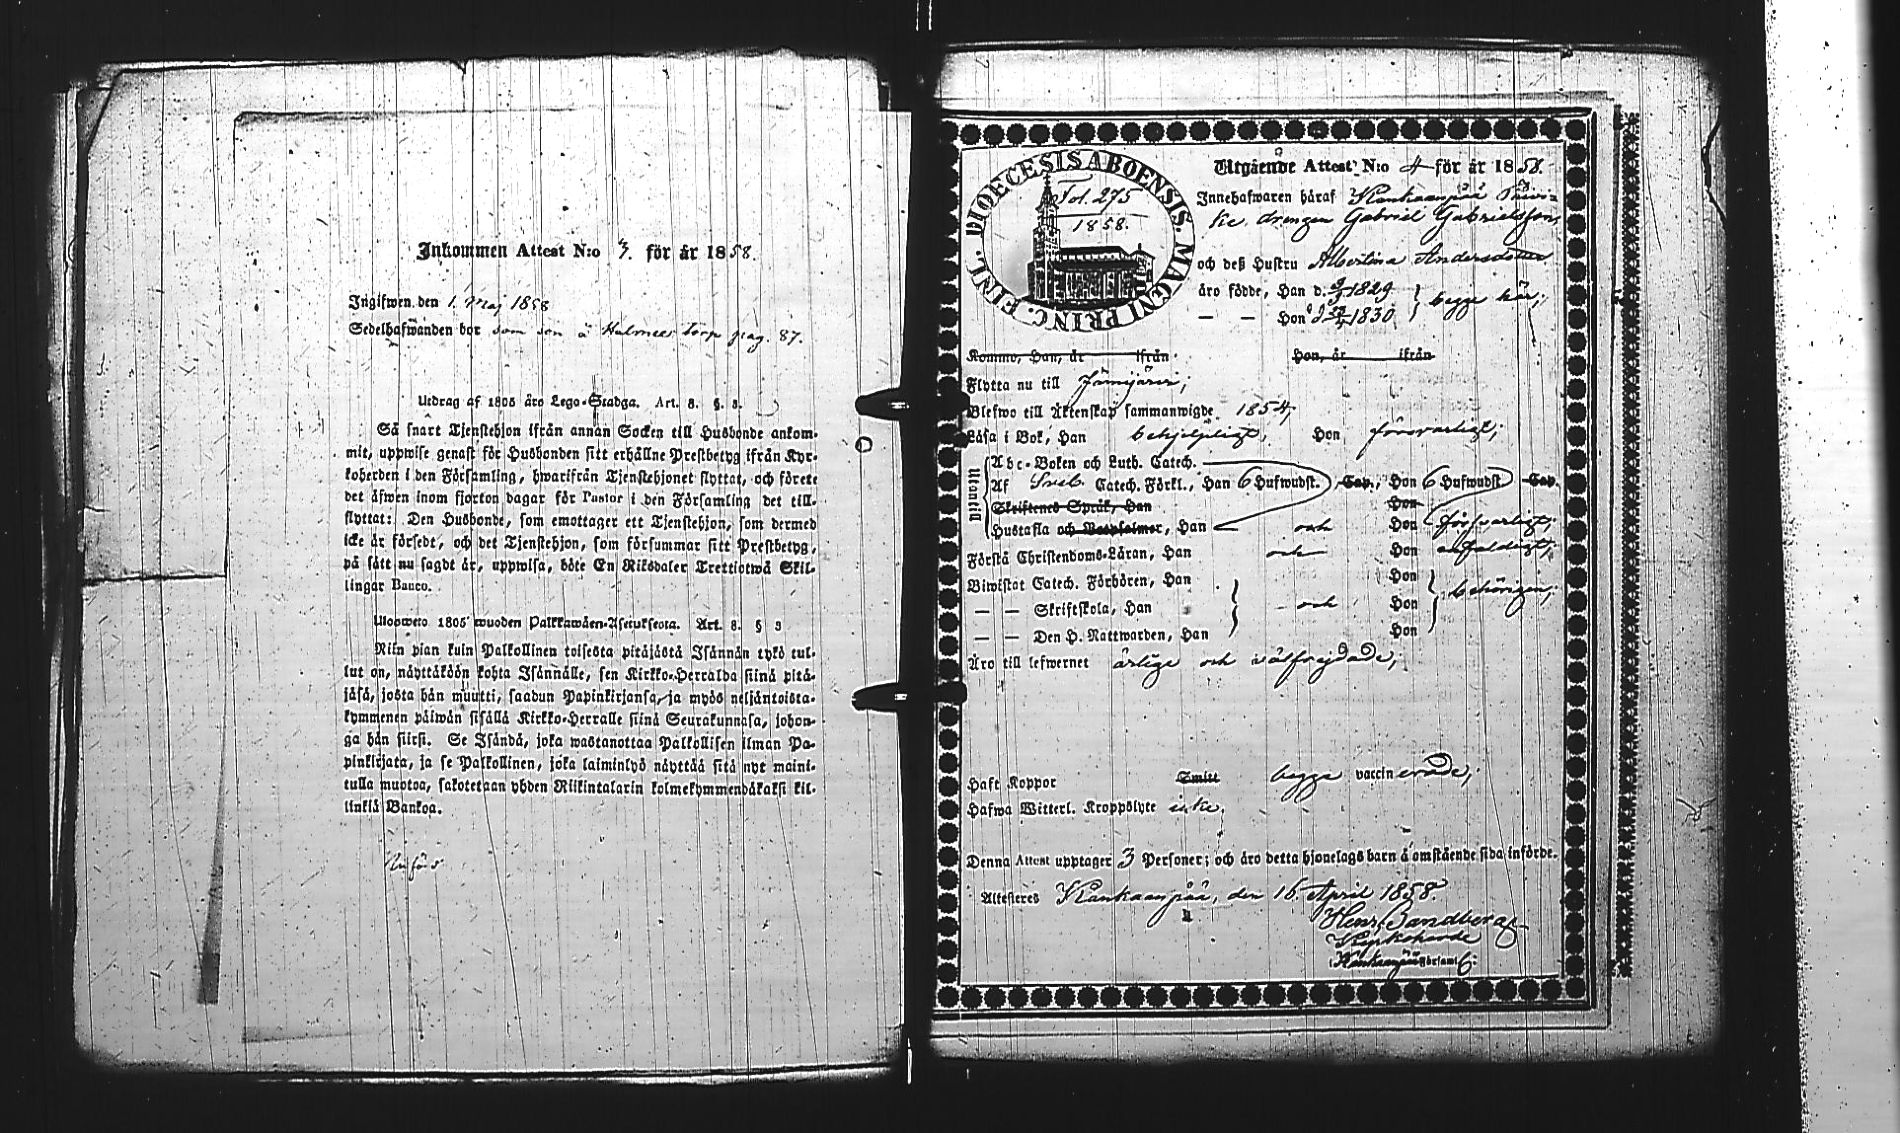 Inkommen Attest N:o 3. för år 1858.
Ingifwen den 1. Maj 1858
Sedelhafwanden bor som son å Hulmee torp pag. 87.
Utdrag af 1805 års Lego-Stadga. Art. 8. §. 3.
Så snart Tjenstehjon ifrån annan Socken till Husbonde ankom-
mit, uppwise genast för Husbonden sitt erhållne Prestbetyg ifrån Kyr-
koherden i den Församling, hwarifrån Tjenstehjonet flyttat, och förete
det äfwen inom fjorton dagar för Pastor i den Församling det till-
flyttat: Den Husbonde, som emottager ett Tjenstehjon, som dermed
icke är försedt, och det Tjenstehjon, som försummar sitt Prestbetyg,
på sätt nu sagdt är, uppwisa, böte En Riksdaler Trettiotwå Skil-
lingar Banco.
Uloswero 1805 wuoden Palkkawäen-Asetuksesta. Art. 8. § 3
Niin pian kuin Palkollinen toisesta pitäjästä Isännän tykö tul-
lut on, näyttäköön kohta Isännälle, sen Kirkko-Herralda siinä pitä-
jäsä, josta hän muutti, saadun Papinkirjansa, ja myös neljäntoista-
kymmenen päiwän sisällä Kirkko-Herralle siinä Seurakunnasa, johon-
ga hän siirsi. Se Isändä, joka wastanottaa Palkollisen ilman Pa-
pinkirjata, ja se Palkollinen, joka laiminlyö näyttää sitä nyt maini-
tulla muotoa, sakotetaan yhden Riikintalarin kolmekymmendäkaksi kil-
linkiä Bankoa.
Införd
DIOECESIS ABOENSIS. MAGNI PRINC. FINL.
Fol. 275
1858.
Utgående Attest N:o 4 för år 1858.
Innehafwaren häraf Kankaanpää Päivi-
ke drengen Gabriel Gabrielsson,
och deß Hustru Albertina Andersdotter
äro födde, Han d. 9/3 1829
— — Hon d 1830 } begge här;
Kommo, Han, år ifrån Hon, år ifrån
Flytta nu till Jämijärvi;
Blefwo till Äktenskap sammanwigde 1854,
Läsa i Bok, Han behjelpligt, Hon försvarligt;
Utantill
Abc-Boken och Luth. Catech.
Af Sveb. Catech. Förkl., Han 6 Hufwudst. Cap., Hon 6 Hufwudst Cap.
Skriftenes Språk, Han Hon
Hustafla och Botpsalmer, Han och Hon försvarligt;
Förstå Christendoms-Läran, Han och Hon enfaldigt;
Biwistat Catech. Förhören, Han Hon
— — Skriftskola, Han och Hon behörigen;
— — Den H. Nattwarden, Han Hon
Äro till lefwernet ärlige och välfrejdade;
Haft Koppor Smitt begge vaccinerade;
Hafwa Witterl. Kroppslyte icke.
Denna Attest upptager 3 Personer; och äro detta hjonelags barn å omstående sida införde.
Attesteres Kankaanpää, den 16. April 1858.
Henr. Sandberg
Kyrkoherde
i Kankaanpää Församl: